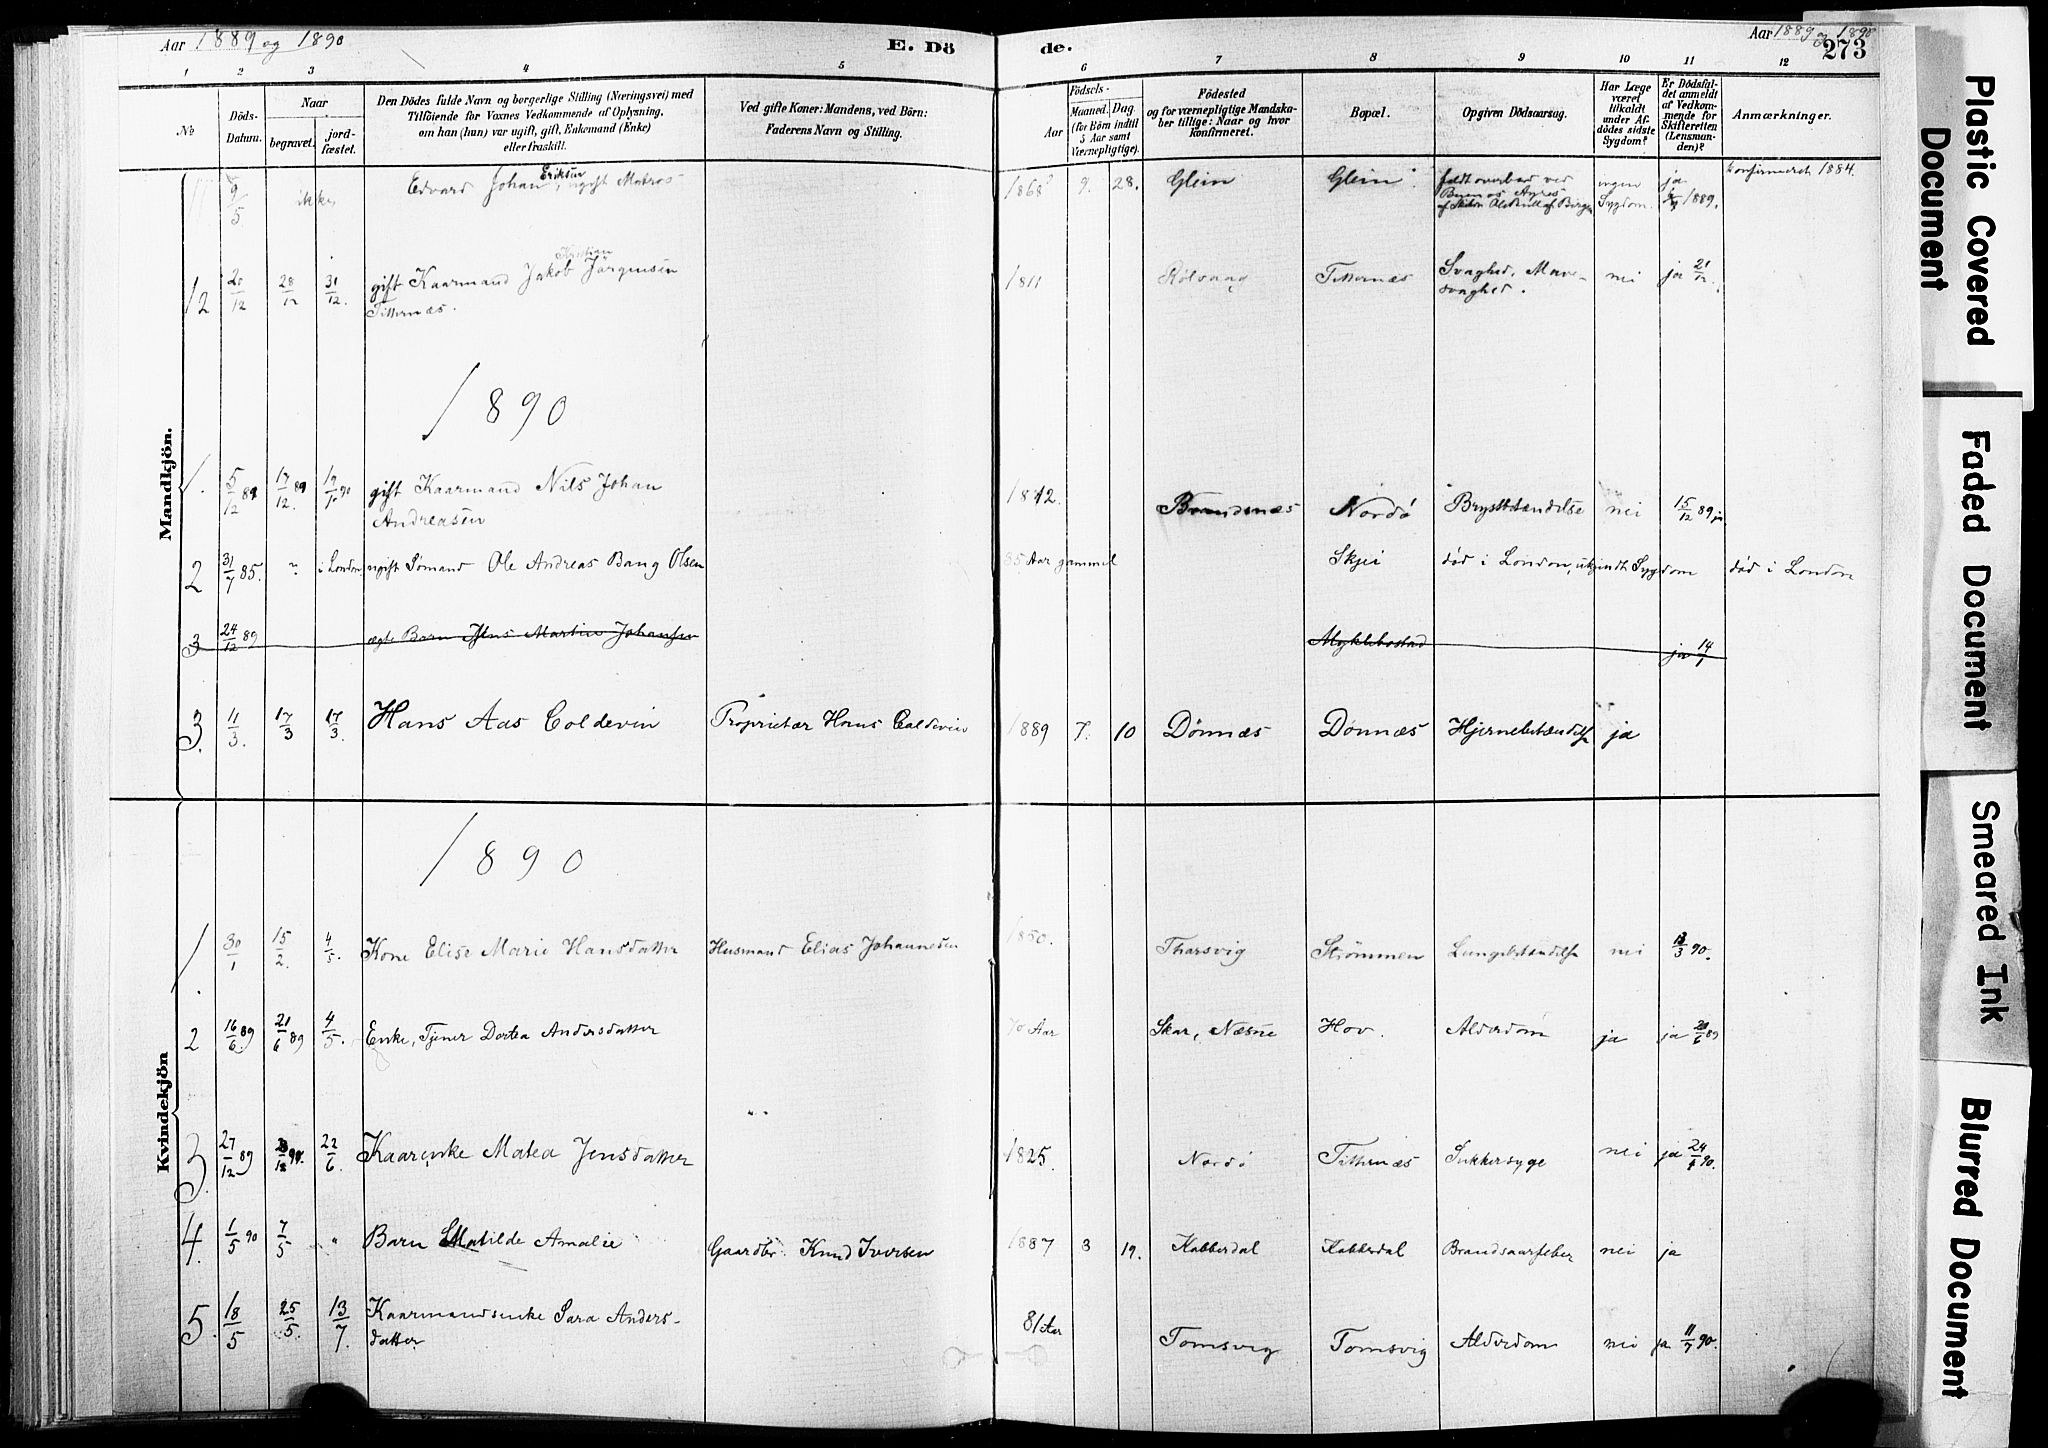 Aar 1889 og 1890
E. Dö
de.
Aar 1889 og 1890
273
1 2 3 4 5 6 7 8 9 10 11 12
№
Döds-
Datum.
Naar
begravet.
jord-
fæstet.
Den Dödes fulde Navn og borgerlige Stilling (Næringsvei) med
Tilföiende for Voxnes Vedkommende af Oplysning,
om han (hun) var ugift, gift, Enkemand (Enke)
eller fraskilt.
Ved gifte Koner: Mandens, ved Börn:
Faderens Navn og Stilling.
Födsels-
Aar
Maaned.
Dag.
(for Börn indtil
5 Aar samt
Værnepligtige).
Födested
og for værnepligtige Mandska-
ber tillige: Naar og hvor
konfirmeret.
Bopæl.
Opgiven Dödsaarsag.
Har Læge
været
tilkaldt
under Af-
dödes sidste
Sygdom?
Er Dödsfal-
det anmeldt
af Vedkom-
mende for
Skifteretten
(Lensman-
den)?
Anmærkninger.
Mandkjön.
9/5 ikke Edvard Johan Eriksen, ugift Matros 1868 9. 28. Glein Glein faldt overbord ved
Buenos Ayres
ingen
Sygdom.
ja
1889.
konfirmeret 1884.
12 20/12 28/12 31/12. gift Kaarmand Jakob Kristian Jørgensen
Titternæs.
1811 Rølvaag Titternæs Svaghed, Mave-
svaghed.
nei ja 21/12.
1890
1. 5/12 89 17/12 89 gift Kaarmand Nils Johan
Andreasen
1812. Brandsnæs Nordø Brystbetændelse nei 15/12 89 ja
2 31/7 85. " i London ugift Sømand Ole Andreas Bang Olsen 35 Aar gammel Skjei død i London, ukjendt Sygdom død i London
3 24/12 89 ægte Barn Jens Martin Johansen Myklebostad ja 14/1
3. 11/3. 17/3 17/3. Hans Aas Coldevin Proprietær Hans Coldevin 1889 7. 10 Dønnæs Dønnæs Hjernebetændelse ja
Kvindekjön
1890
1. 30/1 15/2. 4/5. Kone Elise Marie Hansdatter Husmand Elias Johannesen 1850. Tharsvig Strømmen Lungebetændelse nei 13/3 90.
2 16/6 89 21/6 89 4/5. Enke, Tjener Dortea Andersdatter 70 Aar Skar, Næsne Hov. Alderdom ja ja 20/6 89
3. 27/12 89 22/6. Kaarenke Matea Jensdatter 1825. Nordø Titternæs Sukkersyge nei ja 24/4 90.
4. 1/5 90 7/5 " Barn Matilde Amalie Gaardbr. Knud Iversen 1887 3 19. Kabberdal Kabberdal Brandsaarfeber nei ja
5. 18/5 25/5 13/7. Kaarmandsenke Sara Anders-
datter.
81 Aar Tomsvig Tomsvig Alderdom nei ja 11/7 90.
Plastic Covered
Document
Faded Document
Smeared Ink
Blurred Document